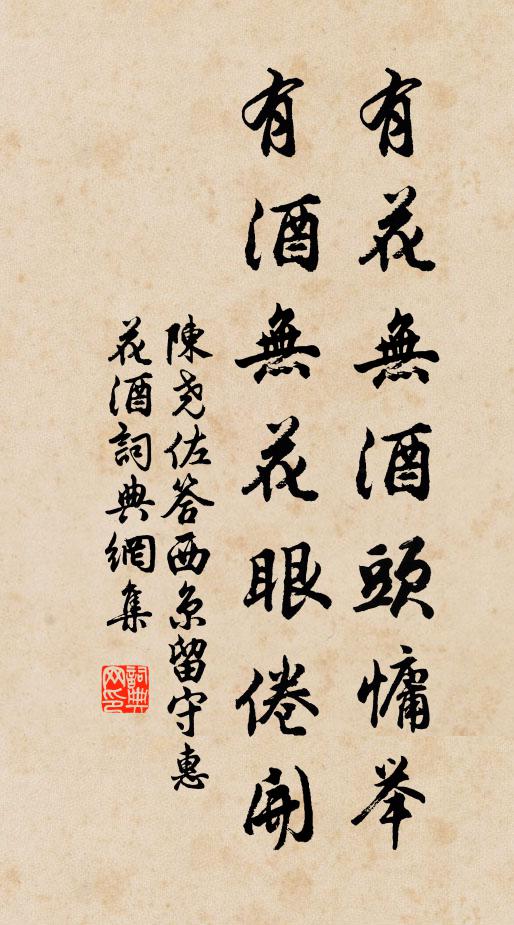 有花無酒頭慵举
有酒無花眼倦開
陳尧佐答西京留守惠
花酒詞典網集
詞典网印